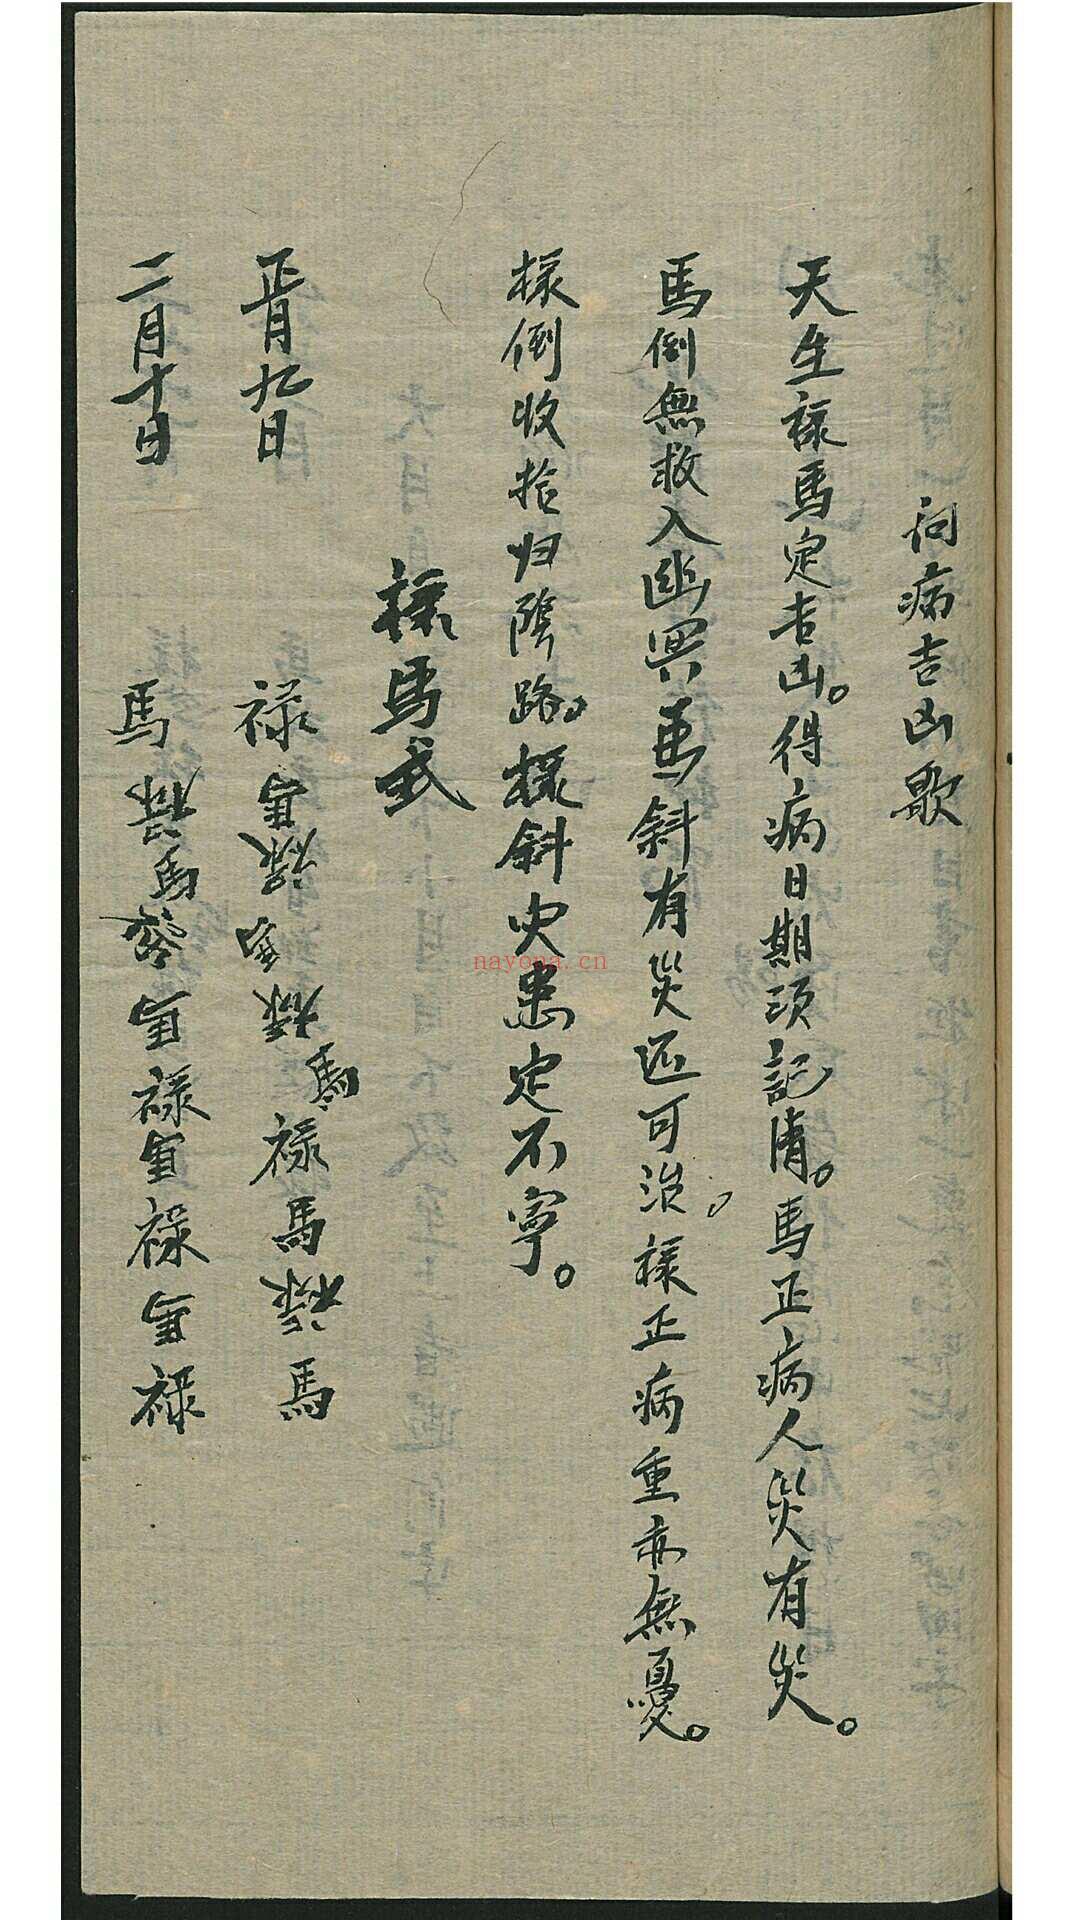 问病吉凶歌
天生祿馬定吉凶。得病日期須記清。馬正病人災有災。
馬倒無救入幽冥馬斜有災还可治。祿正病重亦無憂。
祿倒收拾归陰路。祿斜灾患定不寧。
祿馬式
正月九日 禄馬禄馬禄馬禄馬禄馬
二月十日 馬禄馬禄馬禄馬禄馬禄
nayona.cn